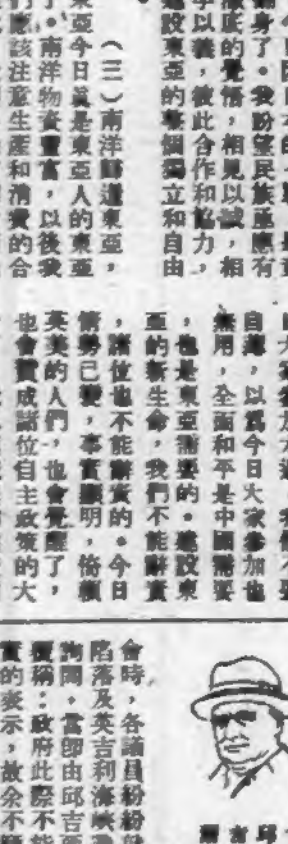 身了。我盼望民族應有
底的覺悟,相見以誠,相
以義,彼此合作和協力,
設東亞的整個獨立和自由
(三)南洋歸還東亞,
亞今日真是東亞人的東亞
。南洋物資豐富,以後我
應該注意生產和消費的合
自,以為今日大家參加也
無用,全面和平是中國需要
,也是東亞需要的。建設東
亞的新生命,我們不能辭責
,諸位也不能辭責的。今日
情勢已變,事實明,倚賴
英美的人們,也會覺醒了,
也會贊成諸位自主政策的大
邱吉爾
會時,各議員紛紛
陷落及英吉利海峽
詢問,當即由邱吉
稱:政府此際不能
的表示,故余不